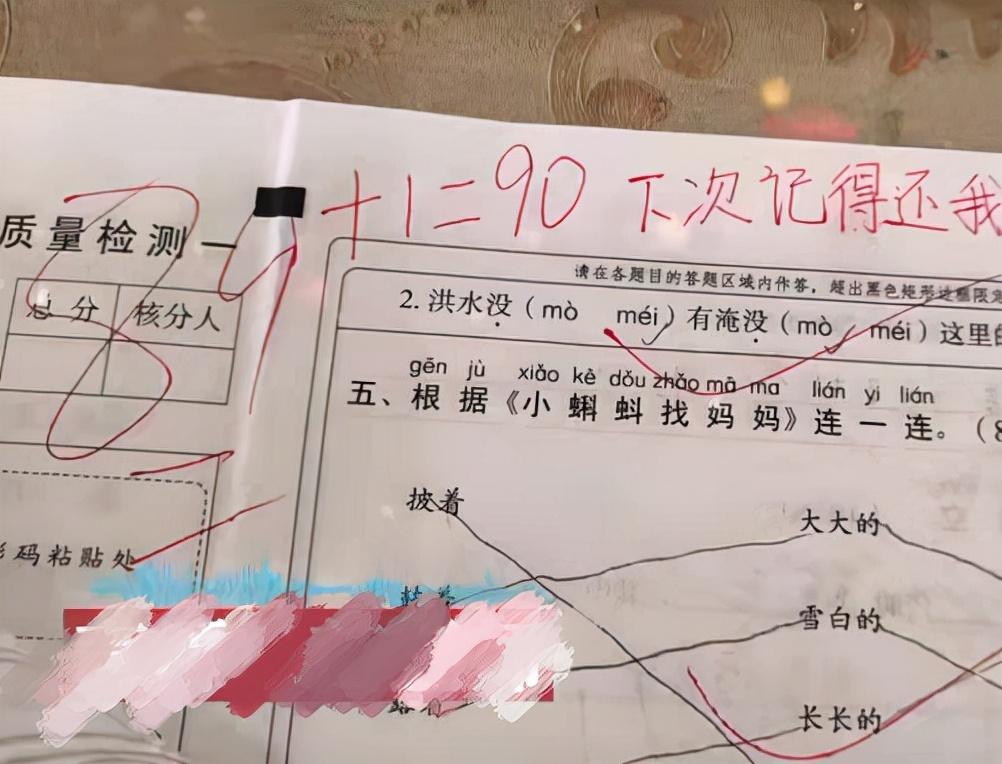 89+1=90 下次记得还我
质量检测一
总分 核分人
请在各题目的答题区域内作答，超出黑色矩形边框限定
2. 洪水没（mò méi）有淹没（mò méi）这里的
gēn jù xiǎo kē dǒu zhǎo mā ma lián yi lián
五、根据《小蝌蚪找妈妈》连一连。（8
披着
大大的
码粘贴处
雪白的
长长的